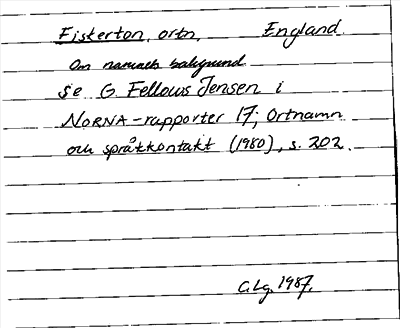 Fiskerton, ortn, England.
Om namnets bakgrund
se G. Fellows Jensen i
NORNA-rapporter 17; Ortnamn
och språkkontakt (1980), s. 202.
C.Lg. 1987.